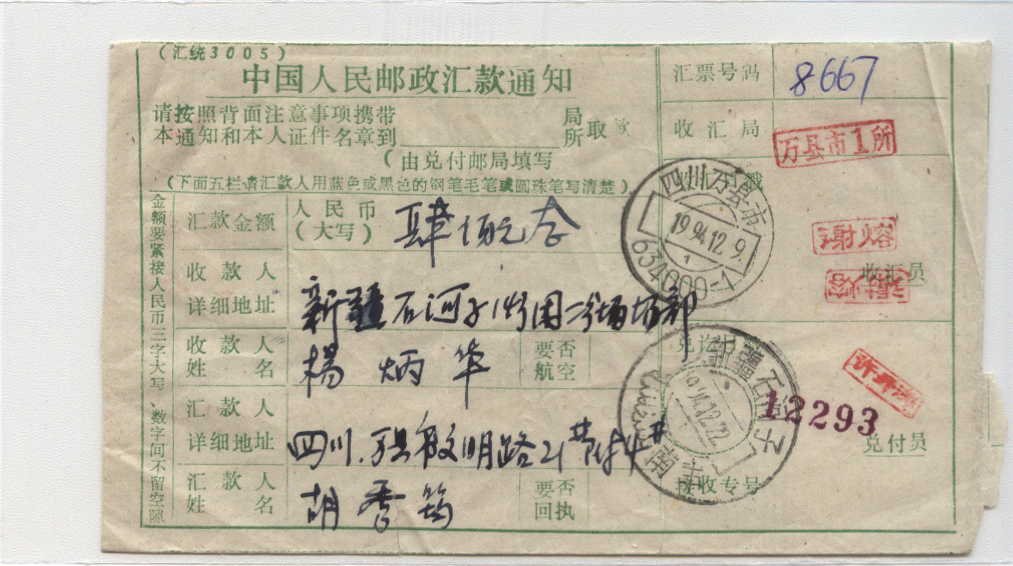 (汇统3005)
中国人民邮政汇款通知
请按照背面注意事项携带
本通知和本人证件名章到 局所 取款
(由兑付邮局填写
(下面五栏请汇款人用蓝色或黑色的钢笔毛笔或圆珠笔写清楚)
金额要紧接人民币三字大写、数字间不留空隙
汇款金额 人民币(大写) 肆佰元
收款人详细地址 新疆石河子 场部
收款人姓名 杨炳华 要否航空
汇款人详细地址 四川 万县 文明路21
汇款人姓名 胡 要否回执
汇票号码 8667
收汇局 万县市1所
四川万县市
1994.12.9.
1
634000-1
谢熔
收汇员
谢熔
兑讫日戳
新疆石河子
1994.12.22
12293
兑付员
接收专号